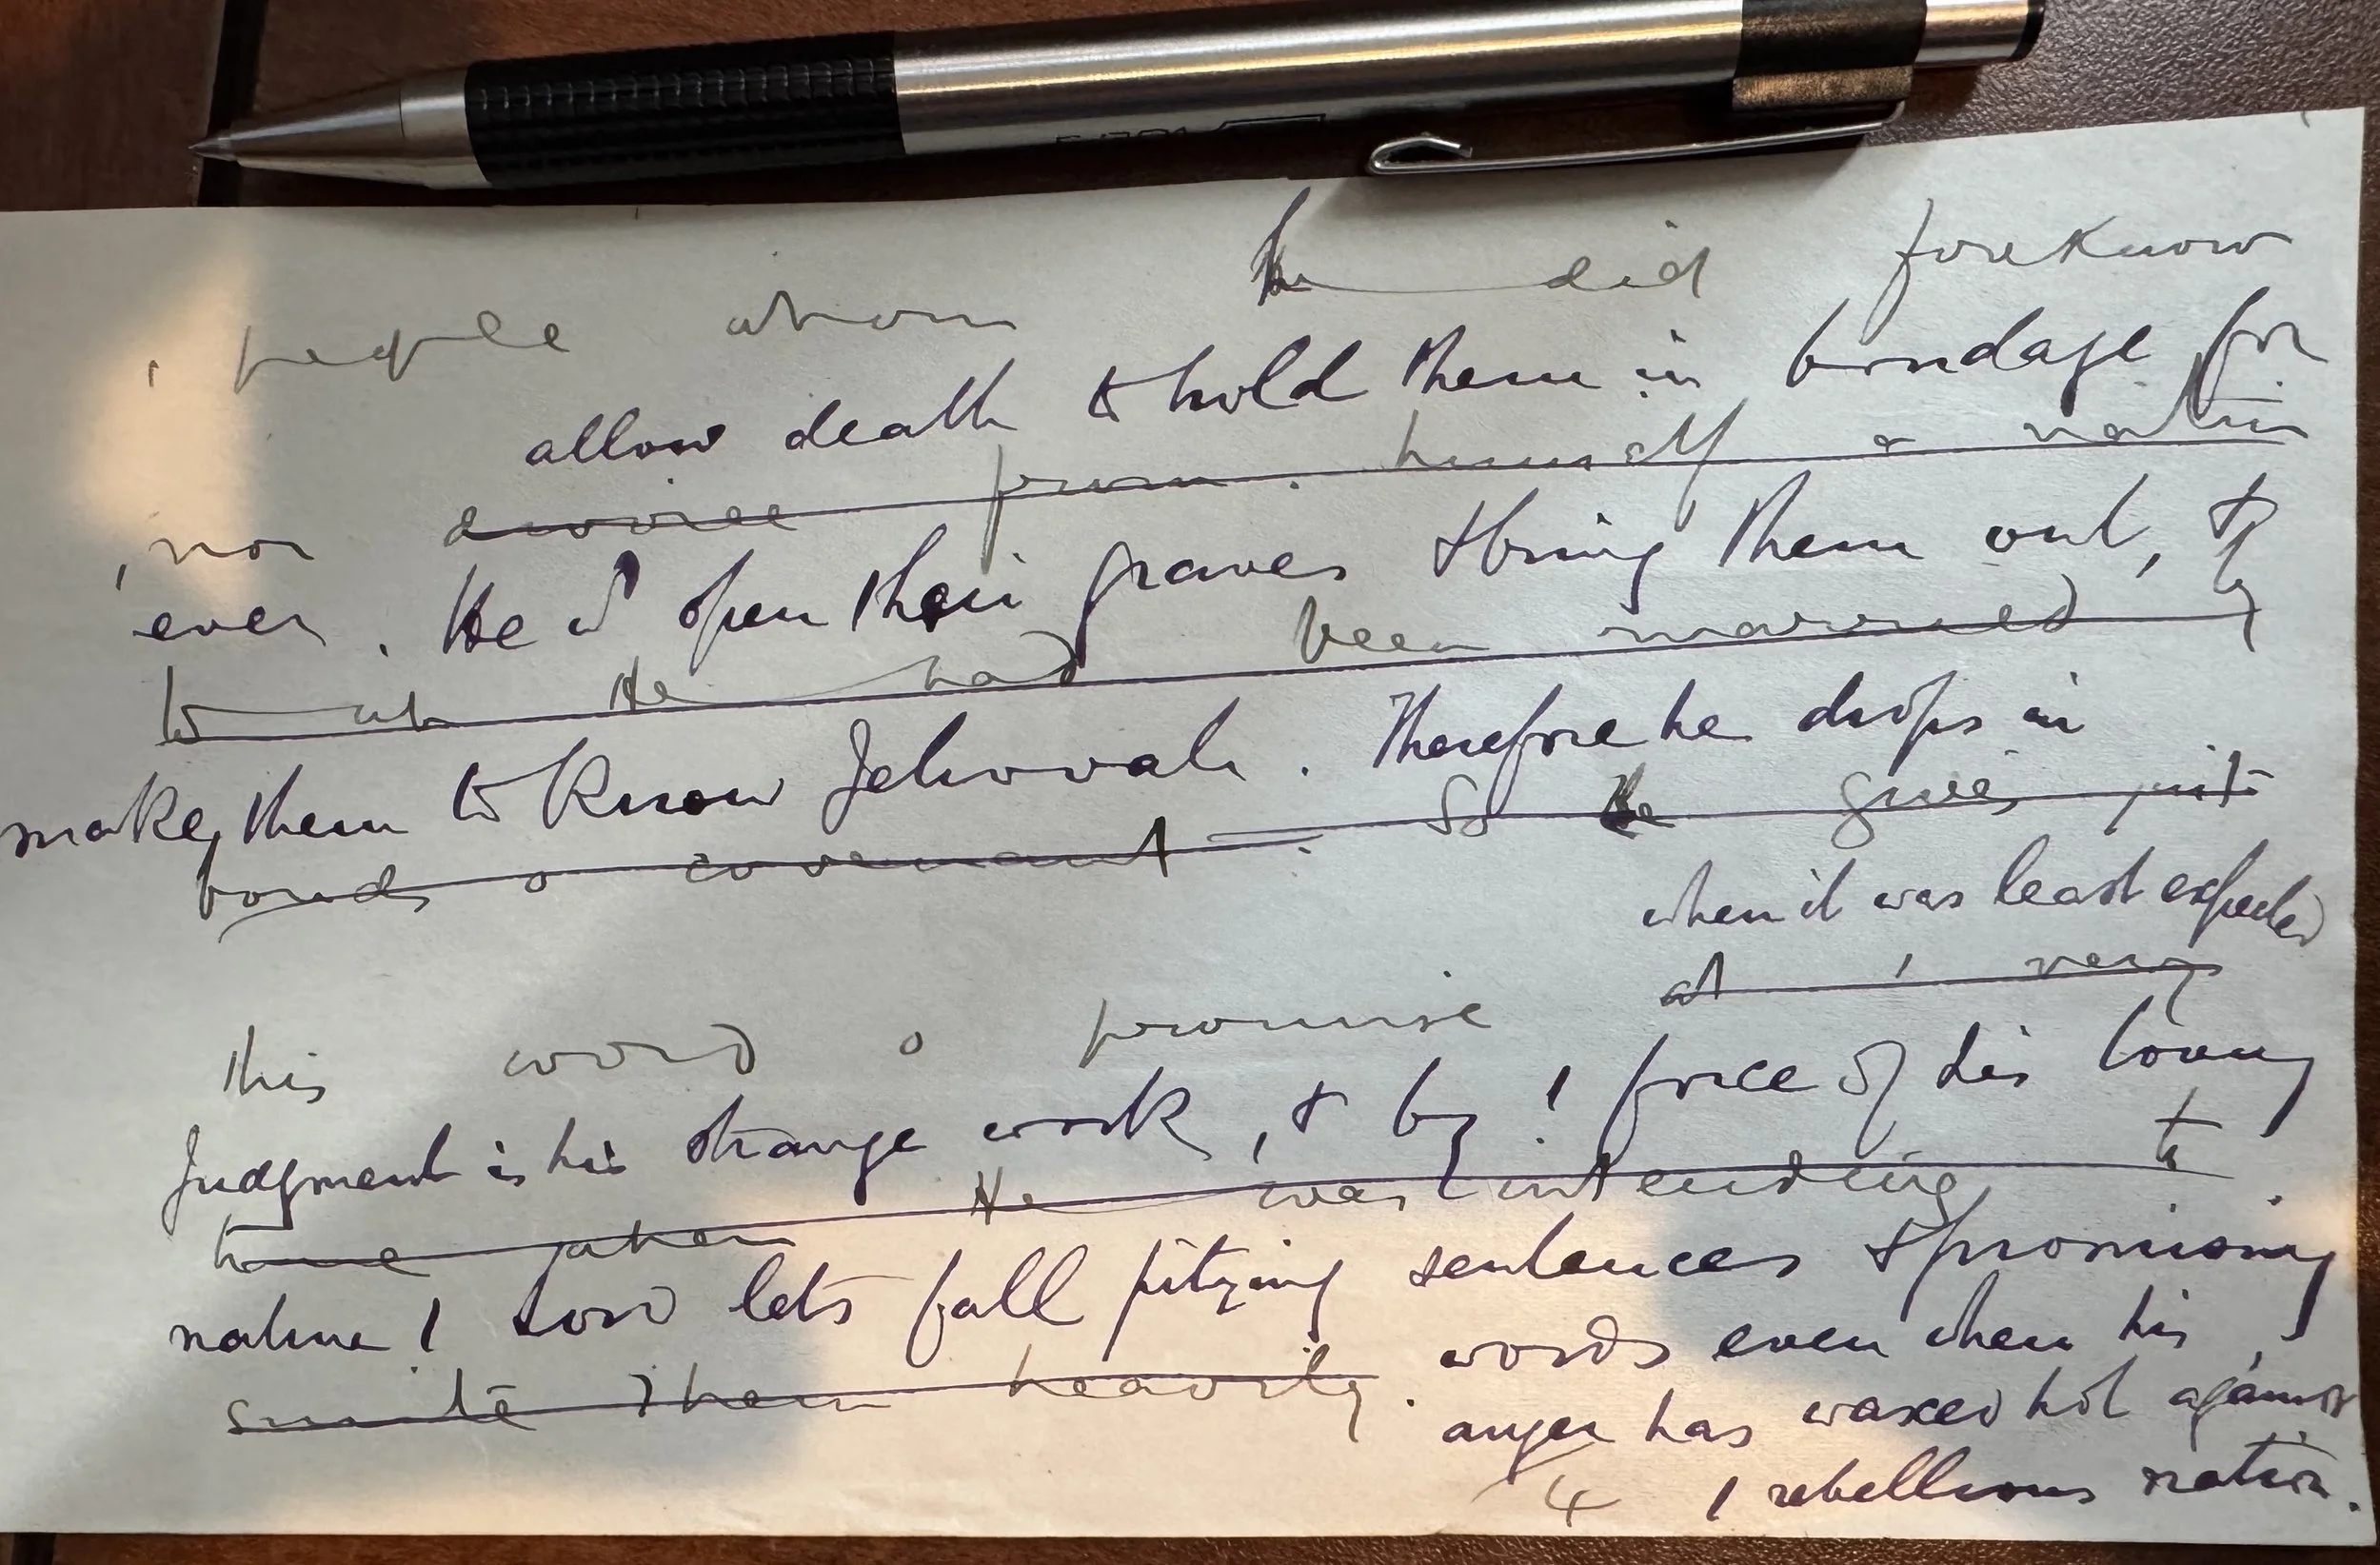 , people whom he did foreknow
allow death to hold them in bondage for
, nor divorce from himself a nation
ever. He wd open their graves & bring them out, &
to wh He had been married by
make them to know Jehovah. Therefore he drops in
bonds o covenant. So He gives just
when it was least expected
this word o promise at / very
Judgment is his strange work, & by / force of his loving
time when He was intending to
nature / Lord lets fall pitying sentences & promising
smite them heavily. words even when his
anger has waxed hot against
4 / rebellious nation.